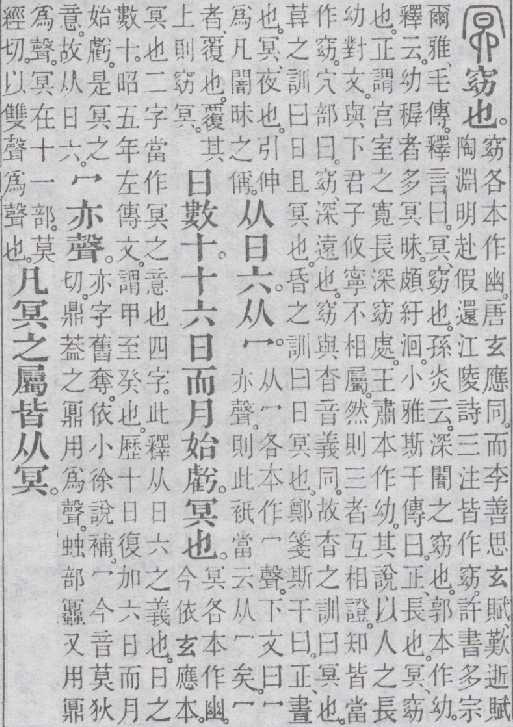 冥窈也。
窈各本作幽。唐玄應同。而李善思玄賦歎逝賦
陶淵明赴假還江陵詩三注皆作窈。許書多宗
爾雅、毛傳。釋言曰。冥、窈也。孫炎云。深闇之窈也。郭本作幼。
釋云。幼穉者多冥昧。頗紆洄。小雅斯干傳曰。正、長也。冥、窈
也。正謂宮室之寬長深窈處。王肅本作幼。其說以人之長
幼對文。與下君子攸寧不相屬。然則三者互相證。知皆當
作窈。穴部曰。窈、深遠也。窈與杳音義同。故杳之訓曰冥也。
莫之訓曰日且冥也。昏之訓曰日冥也。鄭箋斯干曰。正、晝
也。冥、夜也。引伸
爲凡闇昧之偁。
从日六从冖。
从冖各本作冖聲。下文曰冖
亦聲。則此祇當云从冖矣。冖
者、覆也。覆其
上則窈冥。
日數十十六日而月始虧冥也。
冥各本作幽。
今依玄應本。
冥也二字當作冥之意也四字。此釋从日六之義也。日之
數十。昭五年左傳文。謂甲至癸也。歷十日復加六日而月
始虧。是冥之
意。故从日六。
冖亦聲。
亦字舊奪。依小徐說補。冖今音莫狄
切。鼎葢之鼏用爲聲。䖵部𧖅又用鼏
爲聲。冥在十一部。莫
經切。以雙聲爲聲也。
凡冥之屬皆从冥。